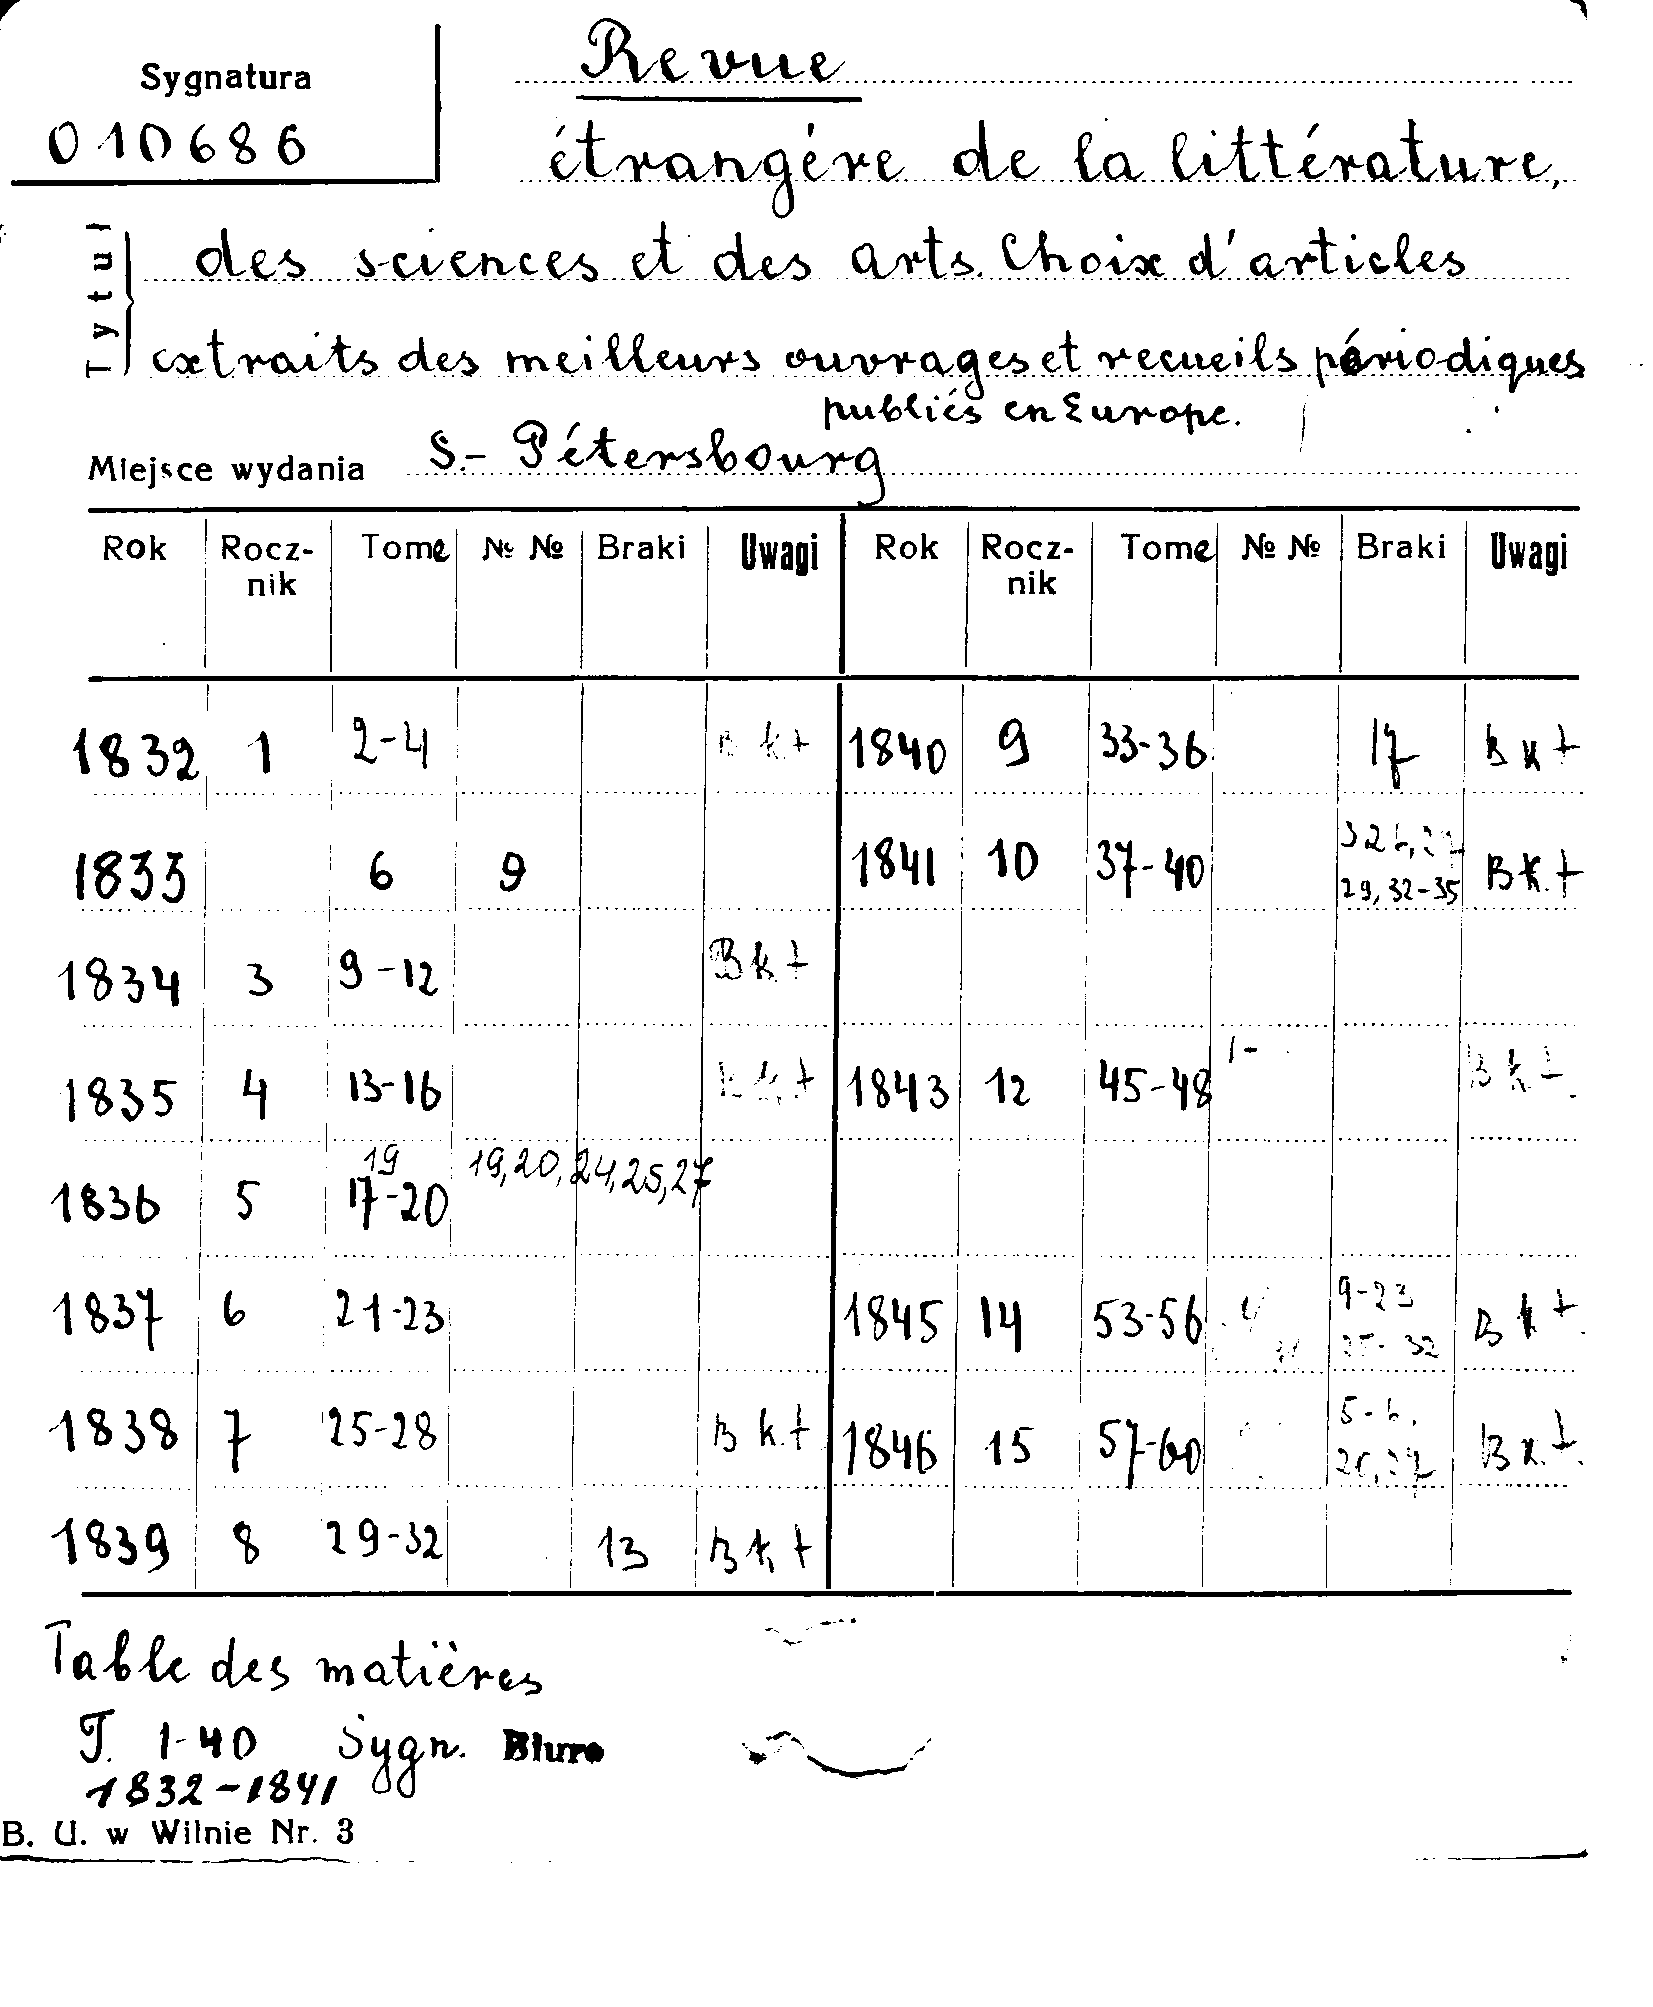 Sygnatura
010686
Revue
étrangére de la littérature,
Tytuł
des sciences et des arts. Choix d'articles
extraits des meilleurs ouvrages et recueils périodiques
publiés en Europe.
Miejsce wydania S.- Pétersbourg
Rok Rocz-nik Tome № № Braki Uwagi Rok Rocz-nik Tome № № Braki Uwagi
1832 1 2-4 B k t 1840 9 33-36 17 B k t
1833 6 9 1841 10 37-40 29, 32-35 B k. t
1834 3 9-12 B k. t
1835 4 13-16 k. t 1843 12 45-48 1- B k t.
19 19, 20, 24, 25, 27
1836 5 17-20
1837 6 21-23 1845 14 53-56 9-23 25-32 B k t.
1838 7 25-28 B k. t 1846 15 57-60 5-6, B k. t.
1839 8 29-32 13 B k t
Table des matières
T. 1-40 Sygn. Biuro
1832-1841
B. U. w Wilnie Nr. 3